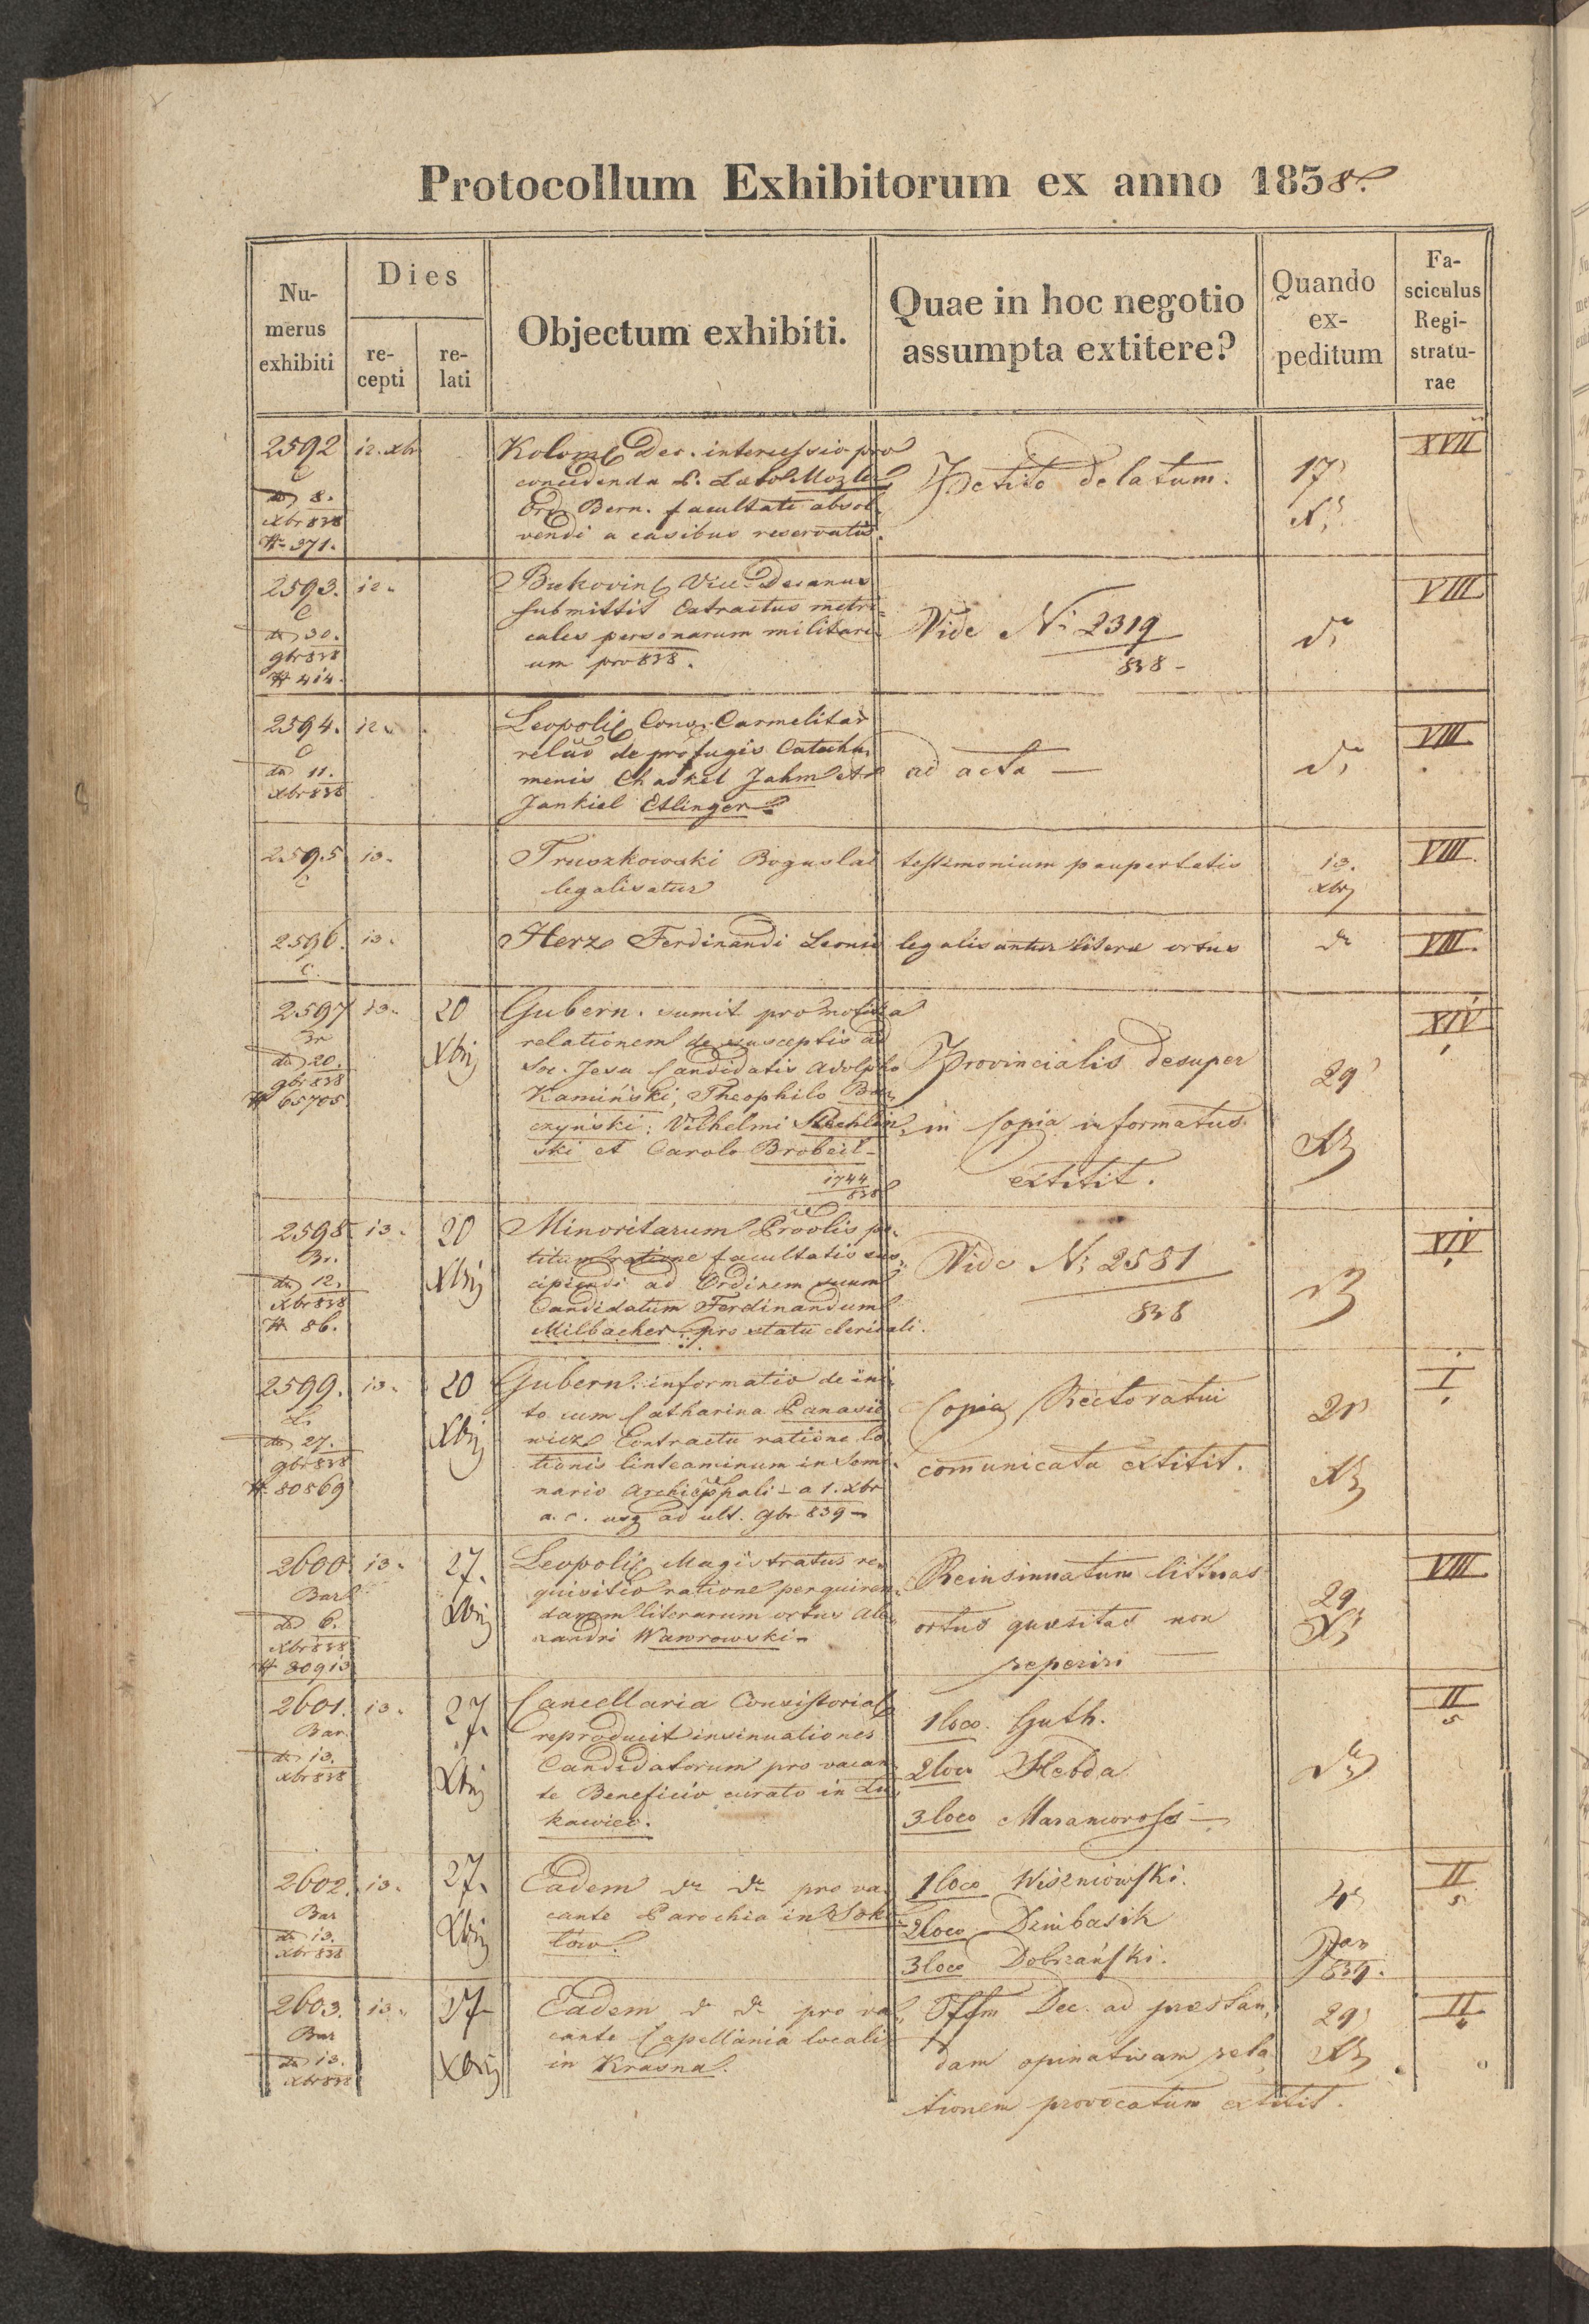 Protocollum Exhibitorum ex anno 1838.
Numerus exhibiti
Dies
recepti
relati
Objectum exhibiti.
Quae in hoc negotio assumpta extitere?
Quando expeditum
Fasciculus Registraturae
2592
C
dd 8.
xbr 838
# 371.
12. xbr
Kolom. Dec. intercessio pro
concedenda P.
Ord. Bern. facultate absol
vendi a casibus reservatis.
Petito delatum.
17
XVII
2593.
C
dd 30.
9br 838
# 414.
12.
Bukovin. Vice Decanus
submittit Extractus metri=
cales personarum militari
um pro 838.
Vide N. 2319
838 -
VIII
2594.
C
dd 11.
xbr 838
12.
Leopoli. Conv. Carmelitar
relatio de profugis Catechu
menis Chaskel Jahm et
Jankiel Etlinger.
ad acta —
VIII
2595
C
13.
Truszkowski Boguslai
legalisatur
testimonium paupertatis
13.
xbr
VIII.
2596.
C.
13.
Herz Ferdinandi Leonis
legalisantur literæ ortus
VIII.
2597
Br
dd 20.
9br 838
# 65705
13.
20
Xbr
Gubern. sumit pro notitia
relationem de susceptis ad
Soc. Jesu Candidatis Adolpho
Kamiński, Theophilo Ba
czyński, Vilhelmi
ski et Carolo Brobeil -
1744
838
Provincialis desuper
in Copia informatus
extitit.
29
XIV
2598
Br.
dd 12.
xbr 838
# 86.
13.
20
Xbr
Minoritarum Provlis pe
titum ratione facultatis sus
cipiendi ad Ordinem suum
Candidatum Ferdinandum
Milbacher pro statu clericali.
Vide N. 2581
838
XIV
2599.
L.
dd 27.
9br 838
# 80869
13.
20
Xbr
Gubern. informatio de ini
to cum Catharina Panasie
wicz Contractu ratione lo
tionis linteaminum in Semi
nario Archieppali - a 1. Xbr
a. c. usq ad ult. 9br 839 -
Copia Rectoratui
comunicata extitit.
I
2600
Bar
dd 6.
xbr 838
# 80913
13.
27.
Xbr
Leopoli. Magistratus re
quisitio ratione perquiren
darum literarum ortus Ale
xandri Wawrowski -
Reinsinuatum litteras
ortus quæsitas non
reperiri —
29
VIII
2601.
Bar
dd 13.
xbr 838
13.
27.
Xbr
Cancellaria Consistorial
reproducit insinuationes
Candidatorum pro vacan
te Beneficio curato in Lu
kawiec.
1 loco. Guth.
2 loco Hebda
3 loco Maramorosz —
II
5
2602.
Bar
dd 13.
xbr 838
13.
27.
Xbr
Eadem dto dto pro va
cante Parochia in Soko
łow.
1 loco Wiszniowski.
2 loco Dzinbasik
3 loco Dobrzański.
Jan
839.
II
5
2603.
Bar
dd 13.
xbr 838
13.
27
Xbr
Eadem dto dto pro va
cante Capellania locali
in Krasna.
Offm Dec. ad præstan
dam opinativam rela
tionem provocatum extitit.
29
II
6